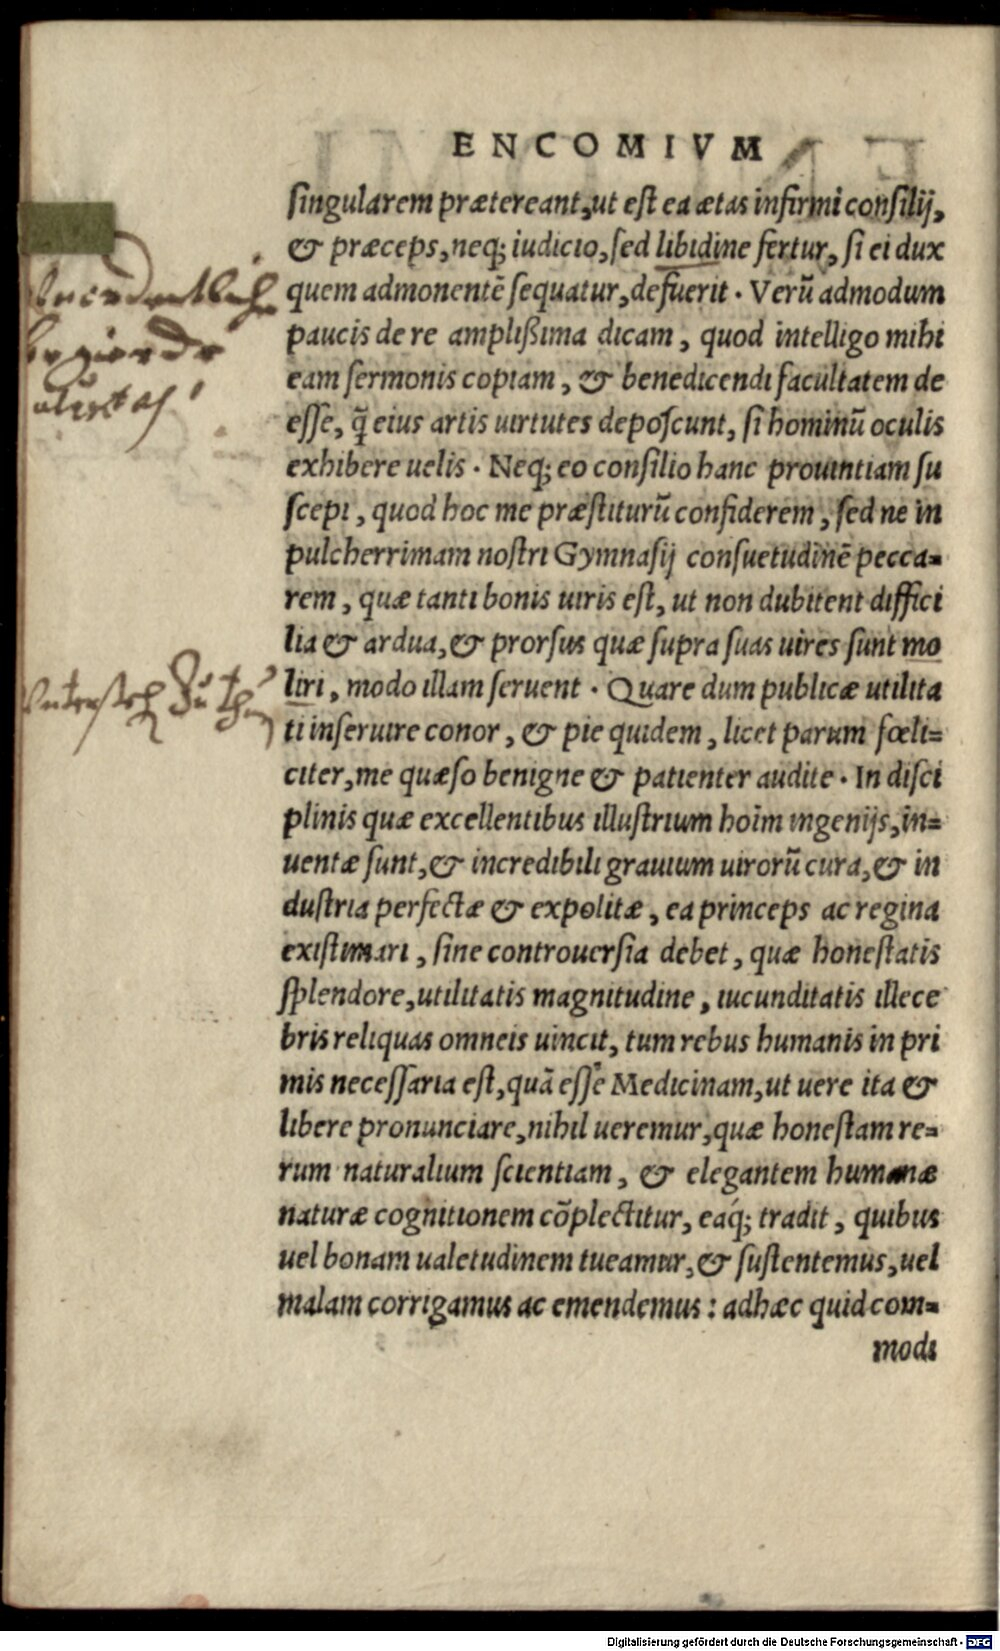 ENCOMIVM
singularem prætereant,ut est ea ætas infirmi consilij,
& præceps,neq; iudicio,sed libidine fertur, si ei dux
quem admonentē sequatur,defuerit. Verū admodum
paucis de re amplißima dicam, quod intelligo mihi
eam sermonis copiam, & benedicendi facultatem de
esse, q̃ eius artis uirtutes deposcunt, si hominū oculis
exhibere uelis. Neq; eo consilio hanc prouintiam su
scepi, quod hoc me præstiturū confiderem, sed ne in
pulcherrimam nostri Gymnasij consuetudinē pecca=
rem, quæ tanti bonis uiris est, ut non dubitent diffici
lia & ardua, & prorsus quæ supra suas uires sunt mo
liri, modo illam seruent. Quare dum publicæ utilita
ti inseruire conor, & pie quidem, licet parum fœli=
citer,me quæso benigne & patienter audite. In disci
plinis quæ excellentibus illustrium hoīm ingenijs,in=
uentæ sunt,& incredibili grauium uirorū cura,& in
dustria perfectæ & expolitæ, ea princeps ac regina
existimari, sine controuersia debet, quæ honestatis
splendore,utilitatis magnitudine, iucunditatis illece
bris reliquas omneis uincit, tum rebus humanis in pri
mis necessaria est,quā esse Medicinam,ut uere ita &
libere pronunciare,nihil ueremur,quæ honestam re=
rum naturalium scientiam, & elegantem humanæ
naturæ cognitionem cōplectitur, eaq́; tradit, quibus
uel bonam ualetudinem tueamur,& sustentemus,uel
malam corrigamus ac emendemus: adhæc quid com=
modi
begierde
Vnterstehn Zu thun
Digitalisierung gefördert durch die Deutsche Forschungsgemeinschaft - DFG